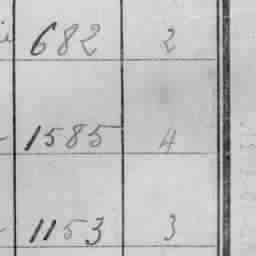 682 2
1585 4
1153 3